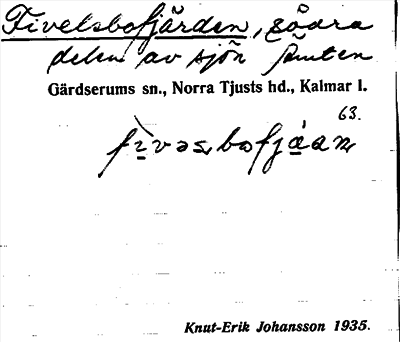 Fivelsbofjärden, södra
delen av sjön Åmten
Gärdserums sn., Norra Tjusts hd., Kalmar l.
63.
Knut-Erik Johansson 1935.